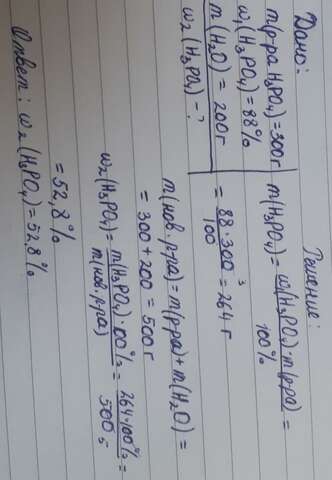 Дано:
m(р-ра H₃PO₄)=300г
w₁(H₃PO₄)=88%
m(H₂O) = 200г
w₂(H₃PO₄) - ?
Решение:
m(H₃PO₄)= w₁(H₃PO₄)·m(р-ра) / 100% =
= 88·300 / 100 = 264 г
m(нов. р-ра)=m(р-ра)+m(H₂O)=
= 300+200=500г
w₂(H₃PO₄)= m(H₃PO₄)·100% / m(нов. р-ра) = 264·100% / 500 =
= 52,8%
Ответ: w₂(H₃PO₄)=52,8%